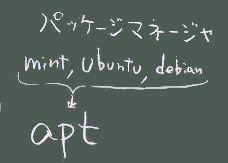 パッケージマネージャ
mint, ubuntu, debian
apt